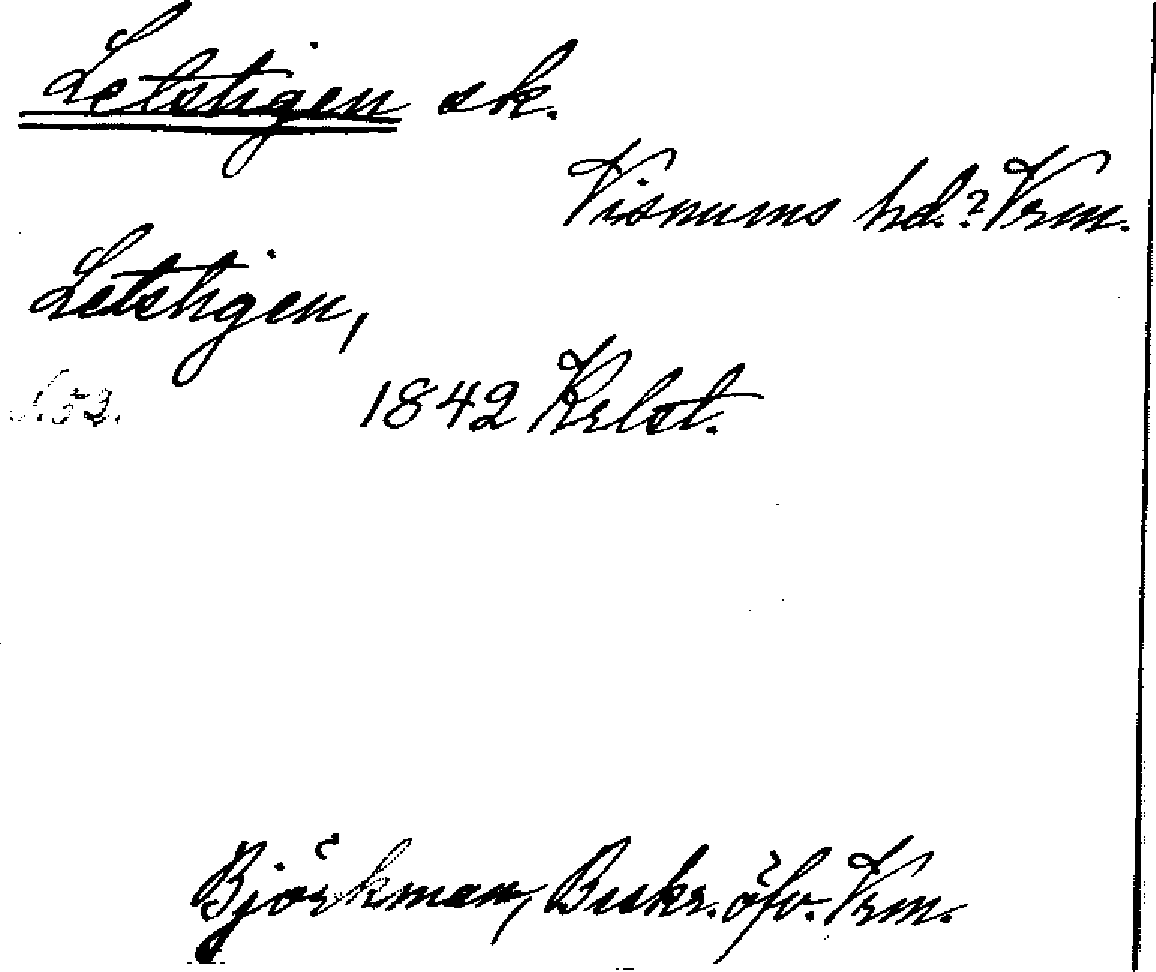 Letstigen sk.
Visnums hd.? Vrm.
Letstigen,
s. 52. 1842 Krlst.
Björkman, Beskr. öfv. Vrm.